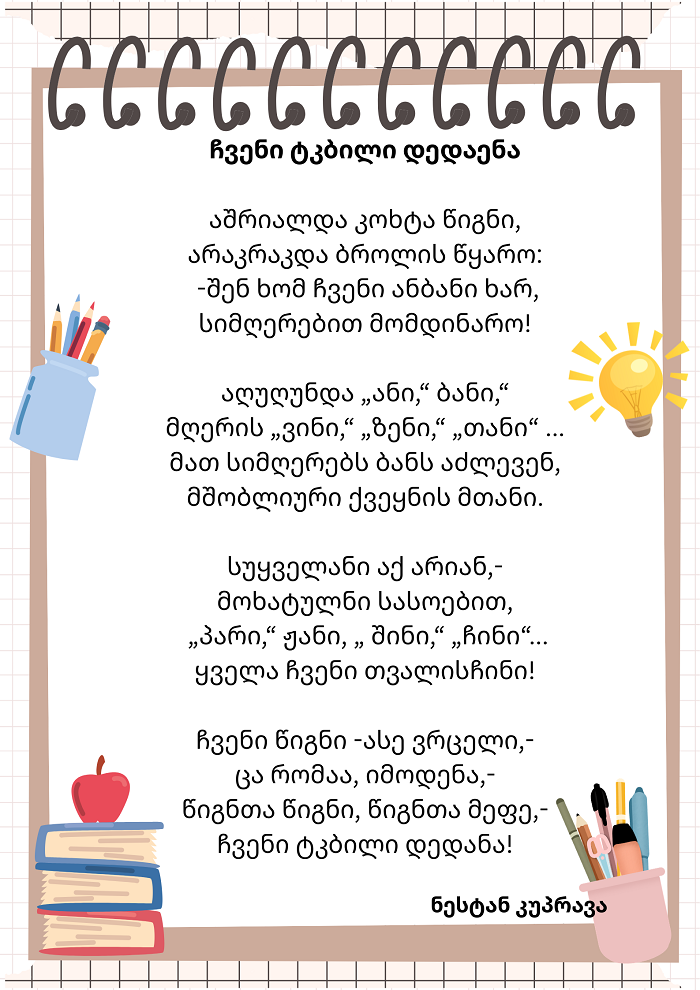 ჩვენი ტკბილი დედაენა
აშრიალდა კოხტა წიგნი,
არაკრაკდა ბროლის წყარო:
-შენ ხომ ჩვენი ანბანი ხარ,
სიმღერებით მომდინარო!
აღუღუნდა „ანი,“ ბანი,“
მღერის „ვინი,“ „ზენი,“ „თანი“ ...
მათ სიმღერებს ბანს აძლევენ,
მშობლიური ქვეყნის მთანი.
სუყველანი აქ არიან,-
მოხატულნი სასოებით,
„პარი,“ ჟანი, „ შინი,“ „ჩინი“...
ყველა ჩვენი თვალისჩინი!
ჩვენი წიგნი -ასე ვრცელი,-
ცა რომაა, იმოდენა,-
წიგნთა წიგნი, წიგნთა მეფე,-
ჩვენი ტკბილი დედანა!
ნესტან კუპრავა